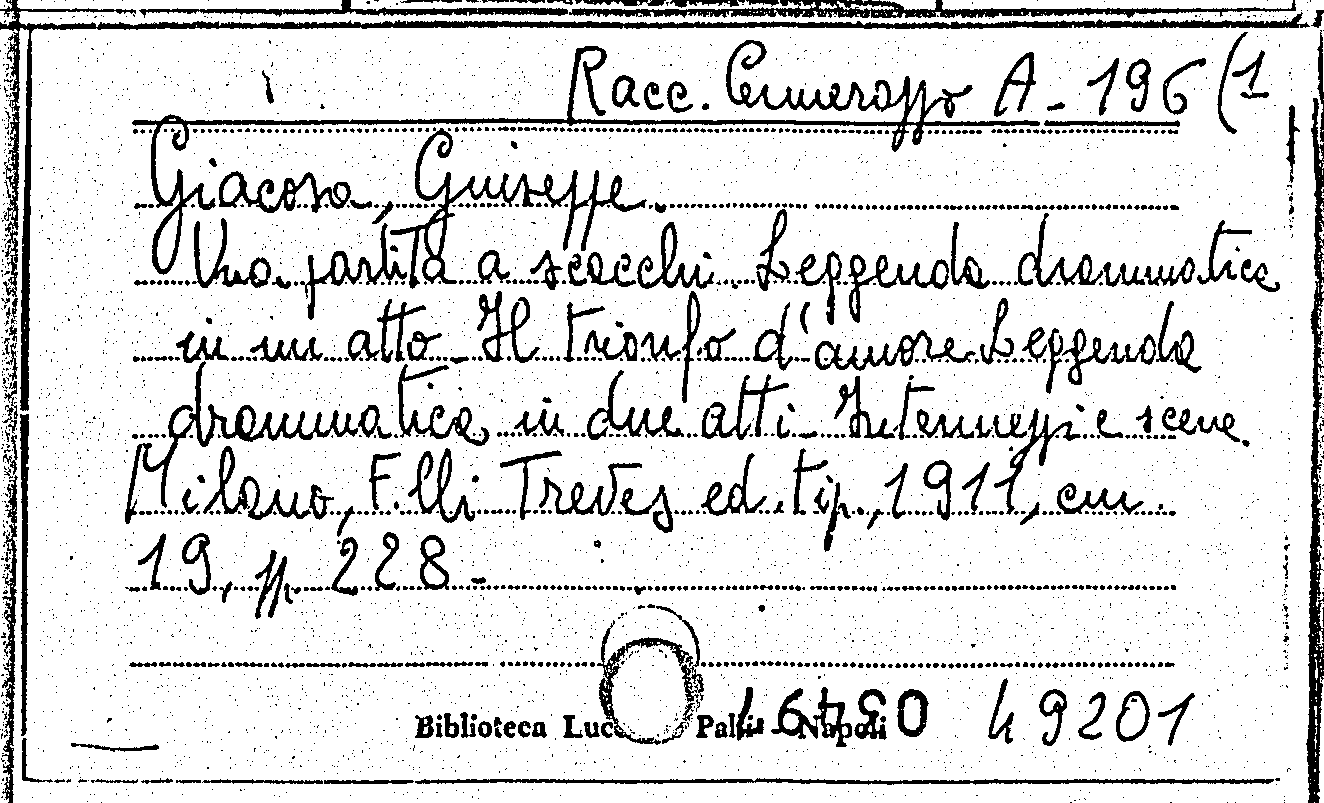 Racc. Cennerazzo A - 196 (1
Giacosa, Giuseppe.
Una partita a scacchi. Leggenda drammatica
in un atto - Il trionfo d'amore Leggenda
drammatica in due atti - Intermezzi e scene.
Milano, F.lli Treves ed. tip., 1911, cm.
19, pp. 228 -
Biblioteca Napoli 49201